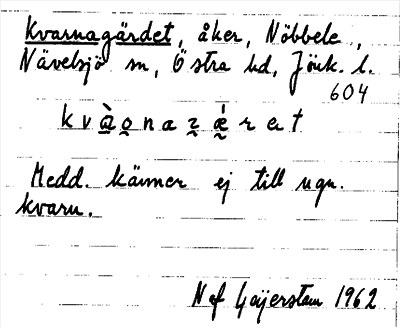 Kvarnagärdet, åker, Nöbbele,
Nävelsjö sn, Östra hd, Jönk. l.
604
Medd. känner ej till ngn.
kvarn.
N af Geijerstam 1962